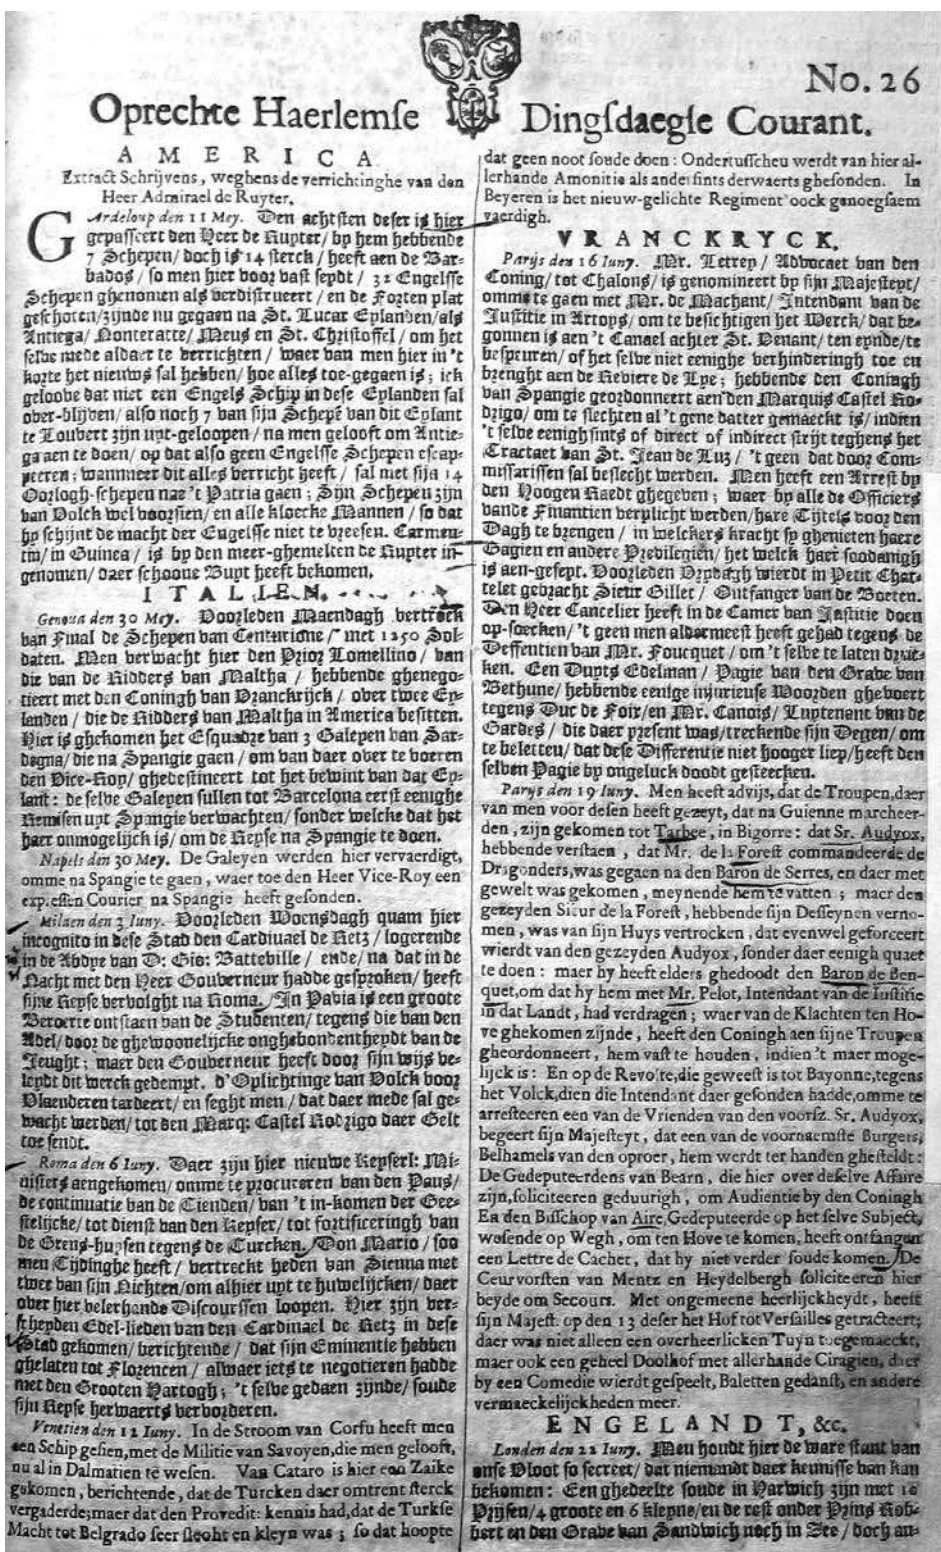 No. 26
Oprechte Haerlemse Dingsdaegse Courant.
AMERICA
Extract Schrijvens, weghens de verrichtinghe van den
Heer Admirael de Ruyter.
GArdeloup den 11 Mey. Den achtsten deser is hier
gepasseert den Heer de Ruyter/ by hem hebbende
7 Schepen/ doch is 14 sterck/ heeft aen de Bar-
bados/ so men hier voor vast seydt/ 32 Engelsse
Schepen ghenomen als verdistrueert/ en de Forten plat
geschoten/ zijnde nu gegaen na St. Lucar Eylanden/ als
Antiega/ Monteratte/ Meus en St. Christoffel/ om het
selve mede aldaer te verrichten/ waer van men hier in 't
korte het nieuws sal hebben/ hoe alles toe-gegaen is; ick
geloove dat niet een Engels Schip in dese Eylanden sal
over-blijven/ also noch 7 van sijn Schepē van dit Eylant
te Louvert zijn uyt-geloopen/ na men gelooft om Antie-
ga aen te doen/ op dat also geen Engelsse Schepen escap-
peeren; wanmeer dit alles verricht heeft/ sal met sijn 14
Oorlogh-schepen nae 't Patria gaen; Sijn Schepen zijn
van Volck wel voorsien/ en alle kloecke Mannen/ so dat
hy schijnt de macht der Engelsse niet te vreesen. Carmen-
tin/ in Guinea/ is by den meer-ghemelten de Ruyter in-
genomen/ daer schoone Buyt heeft bekomen.
ITALIEN.
Genoua den 30 Mey. Voorleden Maendagh vertrock
van Final de Schepen van Centurione/ met 1250 Sol-
daten. Men verwacht hier den Prior Lomellino/ van
die van de Ridders van Maltha/ hebbende ghenego-
tieert met den Coningh van Vranckrijck/ over twee Ey-
landen/ die de Ridders van Maltha in America besitten.
Hier is ghekomen het Esquadre van 3 Galeyen van Sar-
degna/ die na Spangie gaen/ om van daer over te voeren
den Vice-Roy/ ghedestineert tot het bewint van dat Ey-
lant: de selve Galeyen sullen tot Barcelona eerst eenighe
Remisen uyt Spangie verwachten/ sonder welcke dat het
haer onmogelijck is/ om de Reyse na Spangie te doen.
Napels den 30 Mey. De Galeyen werden hier vervaerdigt,
omme na Spangie te gaen, waer toe den Heer Vice-Roy een
expressen Courier na Spangie heeft gesonden.
Milaen den 3 Iuny. Voorleden Woensdagh quam hier
incognito in dese Stad den Cardinael de Retz/ logerende
in de Abdye van D: Gio: Batteville/ ende/ na dat in de
Nacht met den Heer Gouverneur hadde gesproken/ heeft
sijne Reyse vervolght na Roma. In Pavia is een groote
Beroerte ontstaen van de Studenten/ tegens die van den
Adel/ door de ghewoonelijcke onghebondentheydt van de
Jeught; maer den Gouberneur heeft door sijn wijs be-
leydt dit werck gedempt. d'Oplichtinge van Volck voor
Vlaenderen tardeert/ en seght men/ dat daer mede sal ge-
wacht werden/ tot den Marq: Castel Rodrigo daer Gelt
toe sendt.
Roma den 6 Iuny. Daer zijn hier nieuwe Keyserl: Mi-
nisters aengekomen/ omme te procureren van den Paus/
de continuatie van de Tienden/ van 't in-komen der Gee-
stelijcke/ tot dienst van den Keyser/ tot fortificeringh van
de Grens-huysen tegens de Turcken. Don Mario/ soo
men Tijdinghe heeft/ vertreckt heden van Sienna met
twee van sijn Nichten/ om alhier uyt te huwelijcken/ daer
over hier velerhande Discourssen loopen. Hier zijn ver-
scheyden Edel-lieden van den Cardinael de Retz in dese
Stad gekomen/ berichtende/ dat sijn Eminentie hebben
ghelaten tot Florencen/ alwaer iets te negotieren hadde
met den Grooten Hartogh; 't selve gedaen zijnde/ soude
sijn Reyse herwaerts vervorderen.
Venetien den 12 Iuny. In de Stroom van Corfu heeft men
een Schip gesien, met de Militie van Savoyen, die men gelooft,
nu al in Dalmatien te wesen. Van Cataro is hier een Zaike
gekomen, berichtende, dat de Turcken daer omtrent sterck
vergaderde; maer dat den Provedit: kennis had, dat de Turkse
Macht tot Belgrado seer slecht en kleyn was; so dat hoopte
dat geen noot soude doen: Ondertusscheu werdt van hier al-
lerhande Amonitie als andersints derwaerts ghesonden. In
Beyeren is het nieuw-gelichte Regiment oock genoegsaem
vaerdigh.
VRANCKRYCK.
Parijs den 16 Iuny. Mr. Letrey/ Advocaet van den
Coning/ tot Chalons/ is genomineert by sijn Majesteyt/
omme te gaen met Mr. de Machant/ Intendant van de
Justitie in Artoys/ om te besichtigen het Werck/ dat be-
gonnen is aen 't Canael achter St. Venant/ ten eynde/ te
bespeuren/ of het selve niet eenighe verhinderingh toe en
brenght aen de Reviere de Lye; hebbende den Coningh
van Spangie geordonneert aen den Marquis Castel Ro-
drigo/ om te slechten al 't gene datter gemaeckt is/ indien
't selve eenighsints of direct of indirect strijt teghens het
Tractaet van St. Jean de Luz/ 't geen dat door Com-
missarissen sal beslecht werden. Men heeft een Arrest by
den Hoogen Raedt ghegeven; waer by alle de Officiers
vande Finantien verplicht werden/ hare Tijtels voor den
Dagh te brengen/ in welckers kracht sy ghenieten haere
Gagien en andere Previlegien/ het welck haer soodanigh
is aen-geseyt. Voorleden Vrydagh wierdt in Petit Chat-
telet gebracht Sieur Gillet/ Ontfanger van de Boeten.
Den Heer Cancelier heeft in de Camer van Justitie doen
op-soecken/ 't geen men aldermeest heeft gehad tegens de
Deffentien van Mr. Foucquet/ om 't selve te laten druc-
ken. Een Duyts Edelman/ Pagie van den Grave van
Bethune/ hebbende eenige injurieuse Woorden ghevoert
tegens Duc de Foix/ en Mr. Canois/ Luytenant van de
Gardes/ die daer present was/ treckende sijn Degen/ om
te beletteu/ dat dese Differentie niet hooger liep/ heeft den
selven Pagie by ongeluck doodt gesteecken.
Parijs den 19 Iuny. Men heeft advijs, dat de Troupen, daer
van men voor desen heeft gezeyt, dat na Guienne marcheer-
den, zijn gekomen tot Tarbee, in Bigorre: dat Sr. Audyox,
hebbende verstaen, dat Mr. de la Forest commandeerde de
Dragonders, was gegaen na den Baron de Serres, en daer met
gewelt was gekomen, meynende hem te vatten; maer den
gezeyden Sieur de la Forest, hebbende sijn Desseynen verno-
men, was van sijn Huys vertrocken, dat evenwel geforceert
wierdt van den gezeyden Audyox, sonder daer eenigh quaet
te doen: maer hy heeft elders ghedoodt den Baron de Ben-
quet, om dat hy hem met Mr. Pelot, Intendant van de Iustitie
in dat Landt, had verdragen; waer van de Klachten ten Ho-
ve ghekomen zijnde, heeft den Coningh aen sijne Troupen
gheordonneert, hem vast te houden, indien 't maer moge-
lijck is: En op de Revolte, die geweest is tot Bayonne, tegens
het Volck, dien die Intendant daer gesonden hadde, omme te
arresteeren een van de Vrienden van den voorsz. Sr. Audyox,
begeert sijn Majesteyt, dat een van de voornaemste Burgers,
Belhamels van den oproer, hem werdt ter handen ghesteldt:
De Gedeputeerdens van Bearn, die hier over deselve Affaire
zijn, soliciteeren geduurigh, om Audientie by den Coningh
En den Bisschop van Aire, Gedeputeerde op het selve Subject,
wesende op Wegh, om ten Hove te komen, heeft ontfangen
een Lettre de Cachet, dat hy niet verder soude komen. De
Ceurvorsten van Mentz en Heydelbergh soliciteeren hier
beyde om Secours. Met ongemeene heerlijckheydt, heeft
sijn Majest. op den 13 deser het Hof tot Versailles getracteert;
daer was niet alleen een overheerlicken Tuyn toegemaeckt,
maer ook een geheel Doolhof met allerhande Ciragien, daer
by een Comedie wierdt gespeelt, Baletten gedanst, en andere
vermaeckelijckheden meer.
ENGELANDT, &c.
Londen den 22 Iuny. Meu houdt hier de ware stant van
onse Vloot so secreet/ dat niemandt daer kennisse van kan
bekomen: Een ghedeelte soude in Harwich zijn met 10
Prijsen/ 4 groote en 6 kleyne/ en de rest onder Prins Rob-
bert en den Grave van Sandwich noch in See/ doch an-